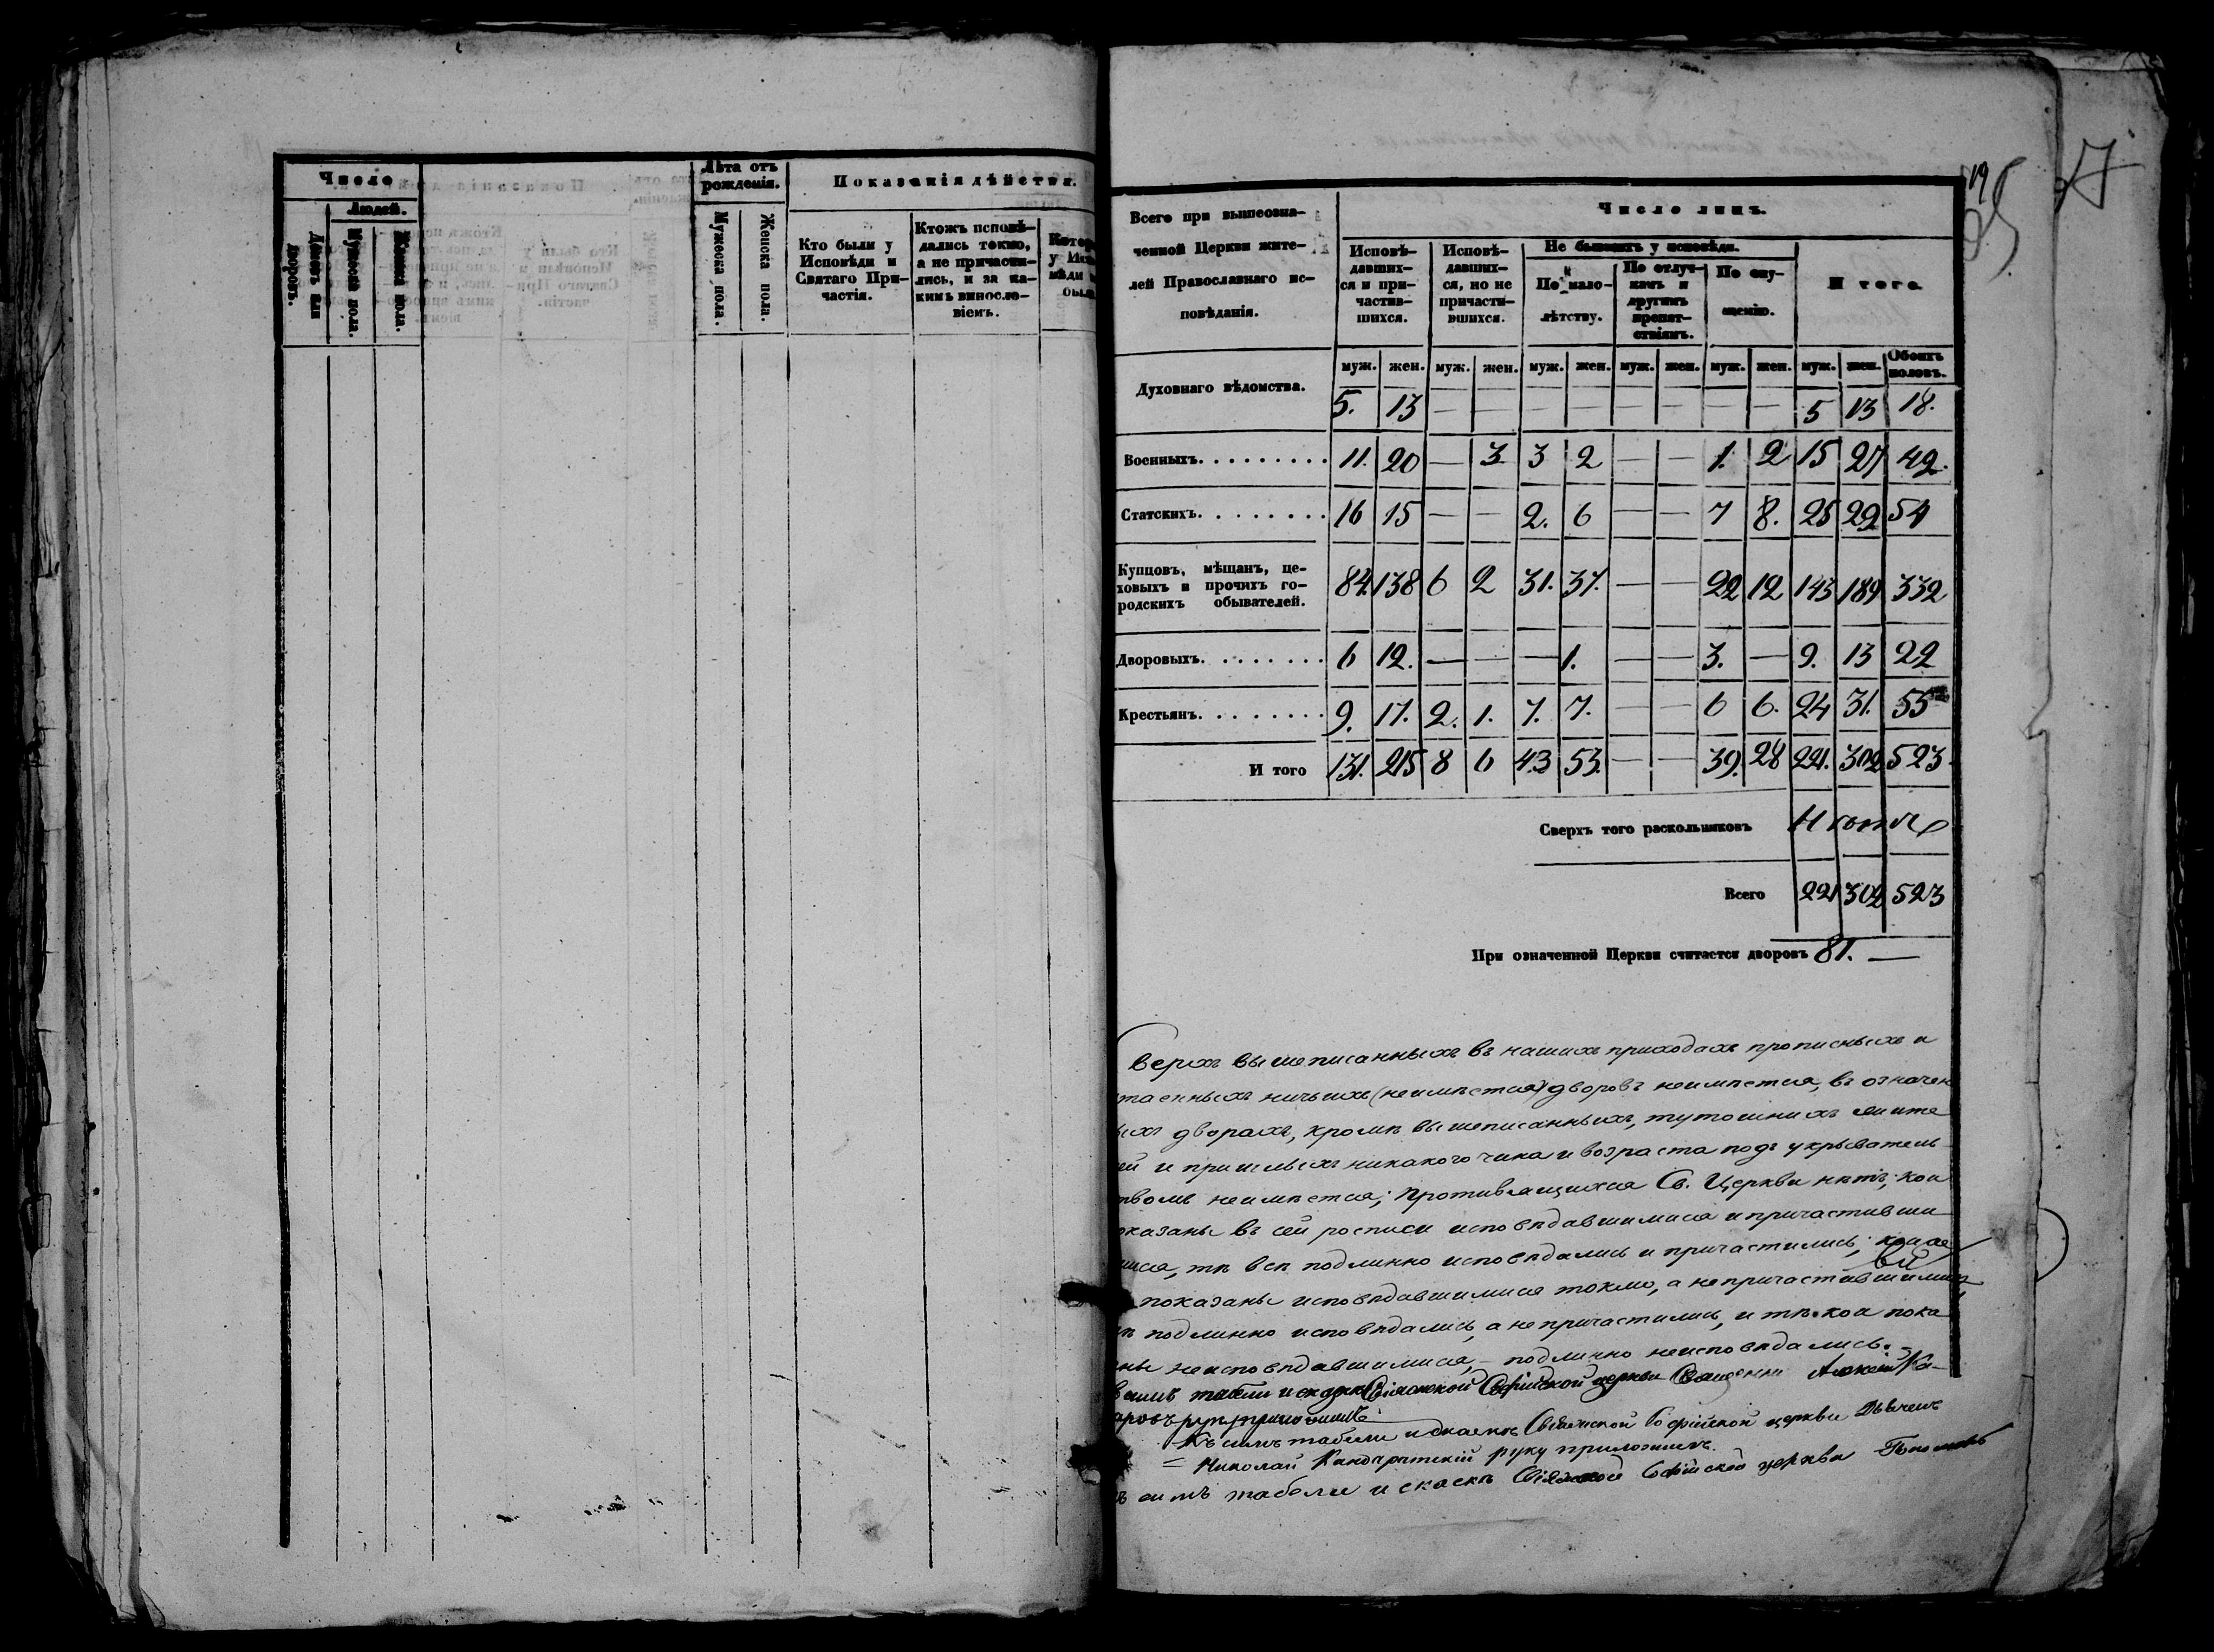 Число
Людей.
Домовъ или дворовъ.
Мужеска пола.
Женска пола.
Лѣта отъ рожденія.
Мужеска пола.
Женска пола.
Показанія дѣйства.
Кто были у
Исповѣди и
Святаго При-
частія.
Ктожъ исповѣ-
дались токмо,
а не причасти-
лись, и за ка-
кимъ виносло-
віемъ.
19
Всего при вышеозна-
ченной Церкви жите-
лей Православнаго ис-
повѣданія.
Число лицъ.
Исповѣ-
давших-
ся и при-
частив-
шихся.
Исповѣ-
давших-
ся, но не
причасти-
вшихся.
Не бывшихъ у исповѣди.
По мало-
лѣтству.
По отлуч-
камъ и
другимъ
препят-
ствіямъ.
По опу-
щенію.
И того.
муж. жен. муж. жен. муж. жен. муж. жен. муж. жен. муж. жен. Обоихъ половъ.
Духовнаго вѣдомства. 5. 13 — — — — — — — — 5 13 18.
Военныхъ. 11. 20 — 3 3 2 — — 1. 2 15 27 42.
Статскихъ. 16 15 — — 2. 6 — — 7 8. 25 29 54
Купцовъ, мѣщанъ, це-
ховыхъ и прочихъ го-
родскихъ обывателей. 84 138 6 2 31. 37. — — 22 12 143 189 332
Дворовыхъ. 6 12. — — — 1. — — 3. — 9. 13 22
Крестьянъ. 9. 17. 2. 1. 7. 7. — — 6 6. 24 31. 55
И того 131. 215 8 6 43 53. — — 39. 28 221. 302 523.
Сверхъ того раскольниковъ
Всего 221 302 523
При означенной Церкви считается дворовъ 81. —
Сверхъ вышеписанныхъ въ нашихъ приходахъ прописныхъ и
таенныхъ ничьихъ (неимѣется) дворовъ неимѣется, въ означен
ыхъ дворахъ, кромѣ вышеписанныхъ, тутошнихъ жите
ей и пришлыхъ никакого чина и возраста подъ укрыватель
твомъ неимѣется; противящихся Св. Церкви нѣтъ; кои
оказаны въ сей росписи исповѣдавшимися и причастивши
мися, тѣ всѣ подлинно исповѣдались и причастились;
показаны исповѣдавшимися токмо, а непричастившимися
ѣ подлинно исповѣдались, а непричастились, и тѣ кои пока
ны неисповѣдавшимися, — подлинно неисповѣдались.
симъ табели и скаскѣ Свіяжской Софійской церкви Священникъ Алексѣй Ка-
аровъ руку приложилъ
Къ симъ табели и скаскѣ Свіяжской Софійской церкви Дьячекъ
Николай Кандаритскій руку приложилъ.
ъ симъ табели и скаскѣ Свіяжской Софійской церкви